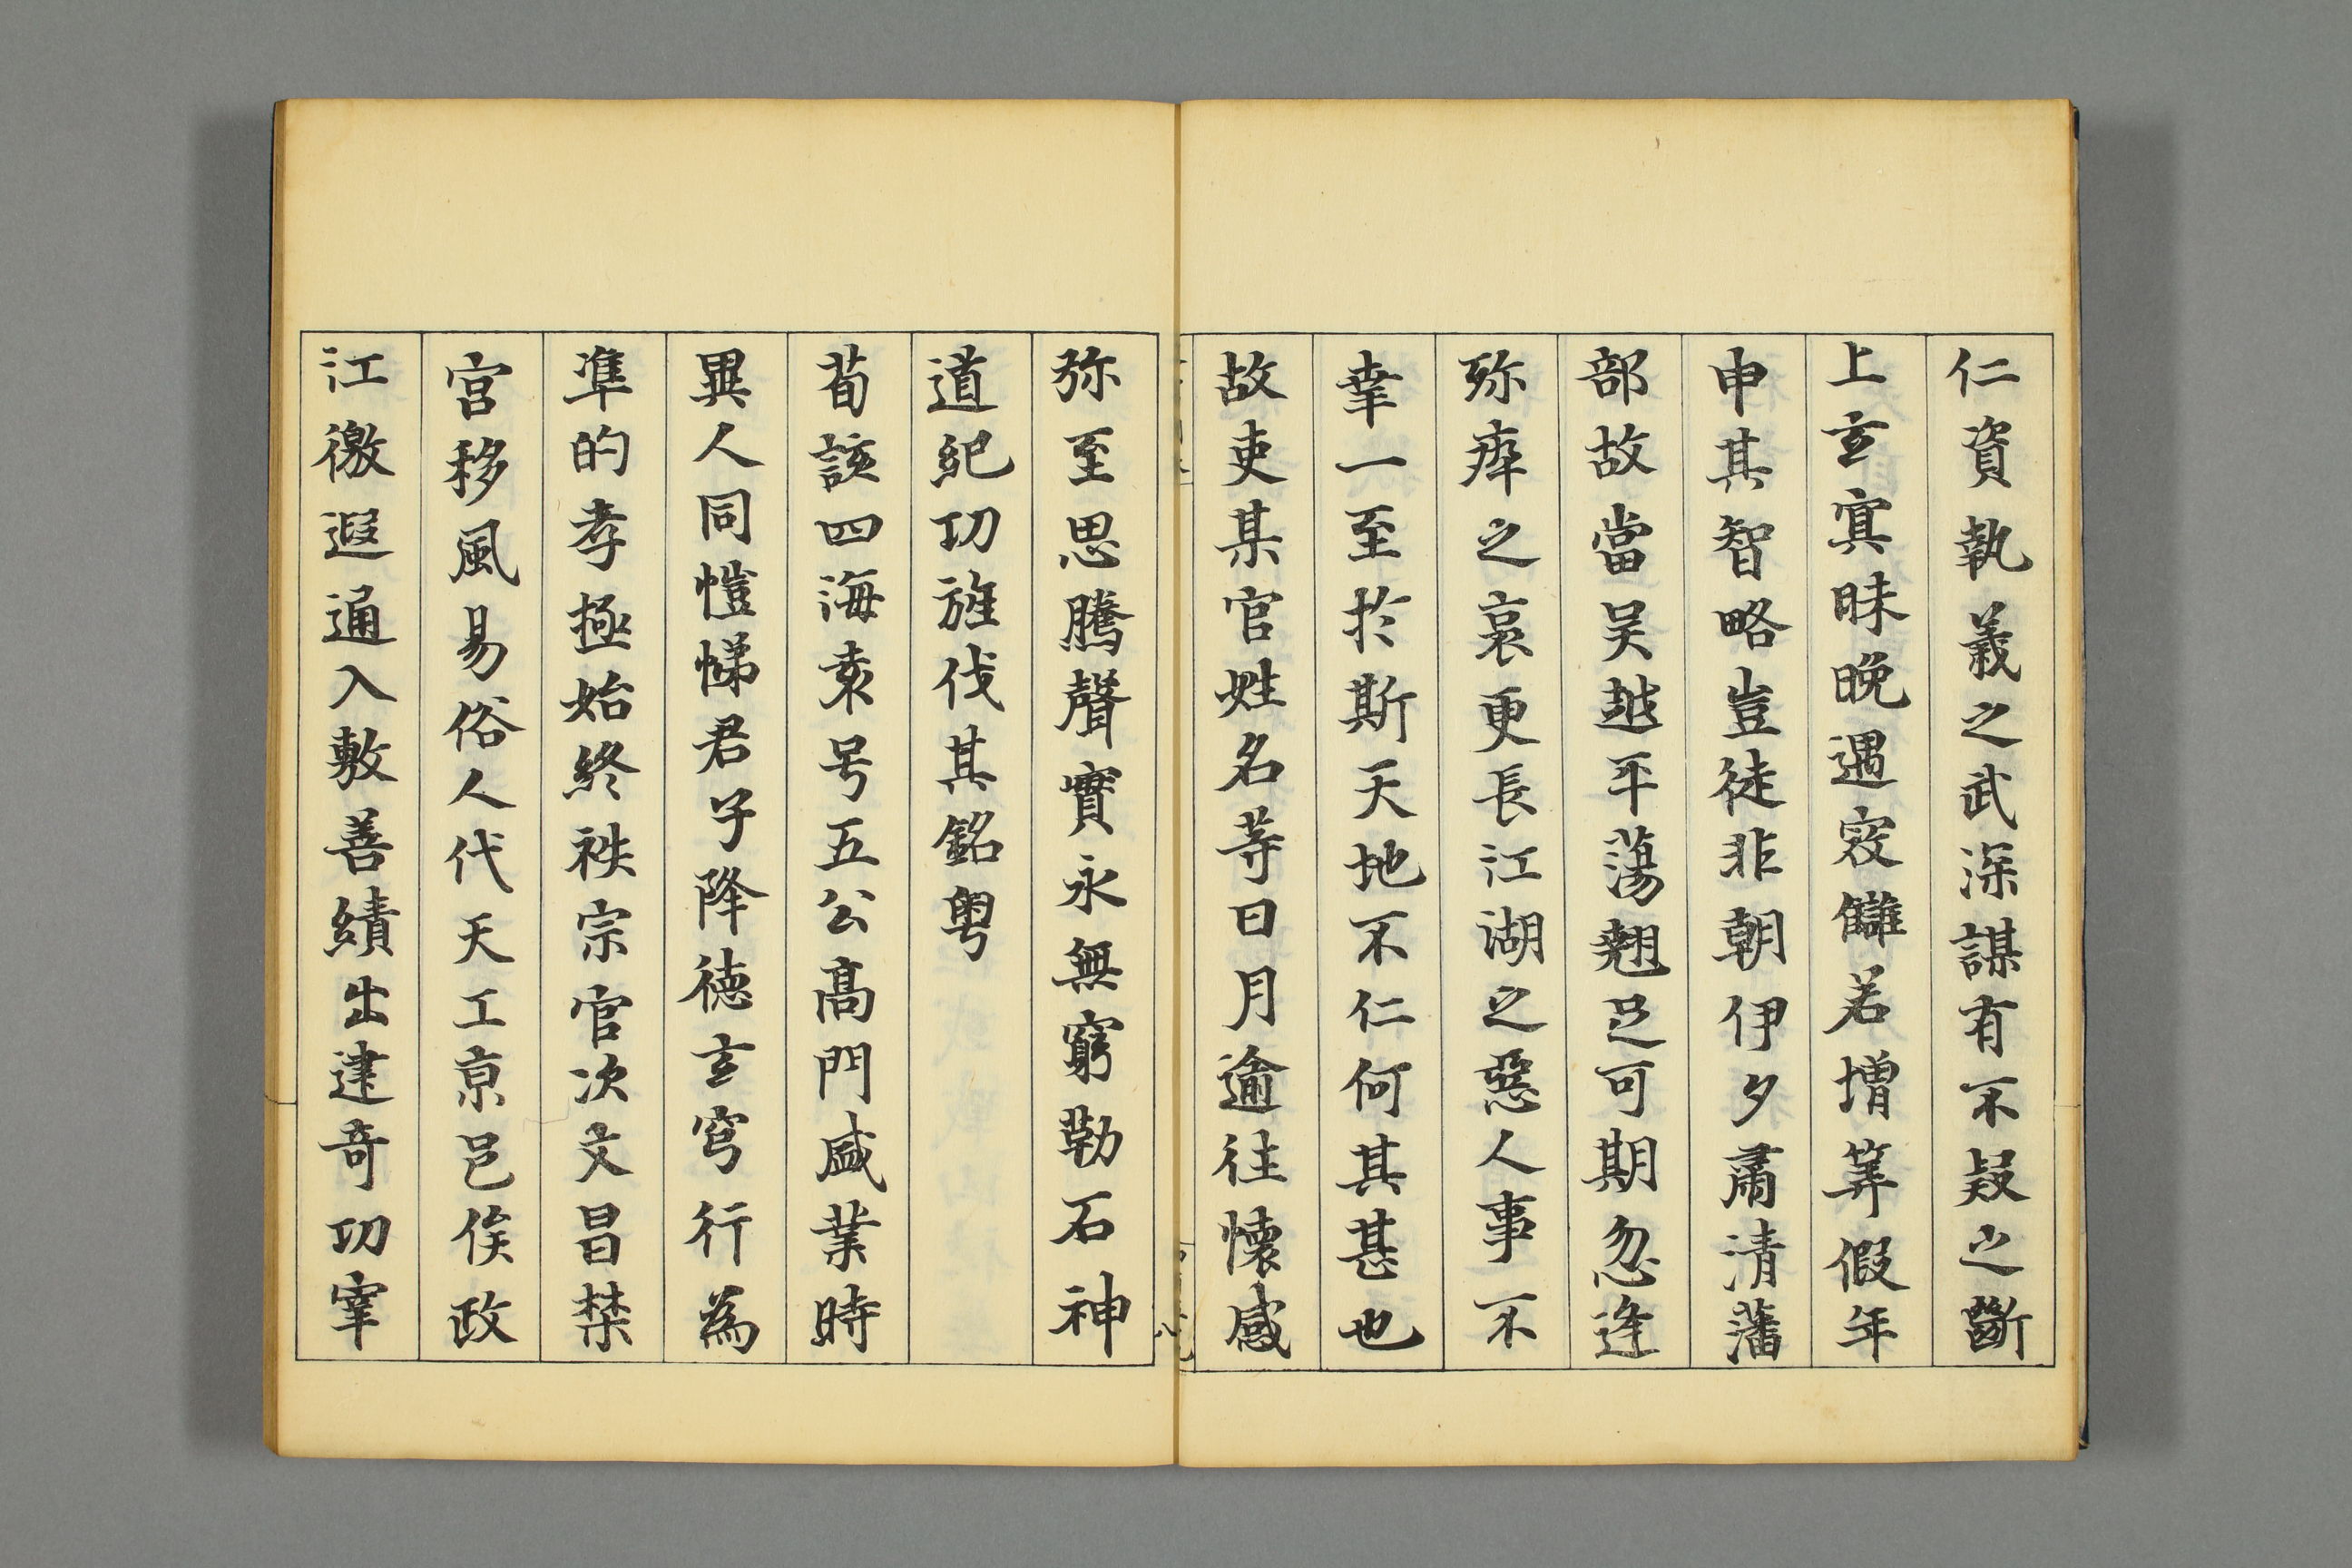 仁資執義之武深謀有不疑之斷
上玄寘昧晩遇寇讎若増筭假年
申其智略豈徒非朝伊夕肅清藩
部故當吴越平蕩翹足可期忽逢
殄瘁之哀更長江湖之惡人事不
幸一至於斯天地不仁何其甚也
故吏某官姓名等日月逾往懷感
弥至思騰聲實永無窮勒石神
道紀功旌伐其銘粤
荀該四海袁号五公高門盛業時
異人同愷悌君子降徳玄穹行為
準的孝極始終袟宗官次文昌禁
宮移風易俗人代天工京邑俟政
江徼遐通入敷善績出建奇功宰